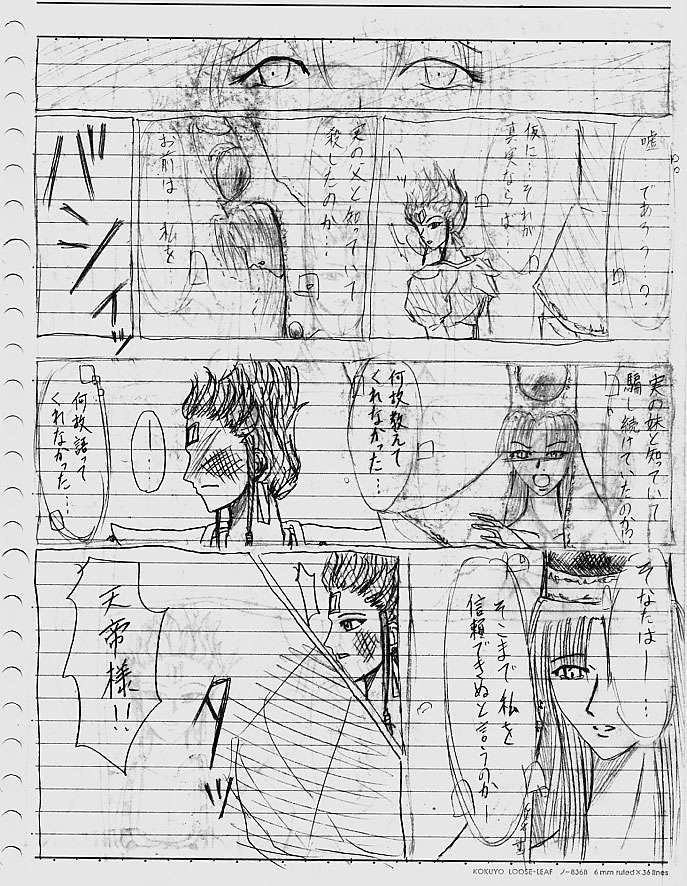 嘘
であろう…?
仮に…それが
真実ならば…
実の父と知っていて
殺したのか…
お前は…私を…
バシィッ
実の妹と知っていて
騙し続けていたのか?
何故教えて
くれなかった…
…
何故語って
くれなかった…
そなたは―…
そこまで私を
信頼できぬと言うのか―
ダッ
天帝様!!
KOKUYO LOOSE-LEAF ノ-836B 6mm ruled×36 lines